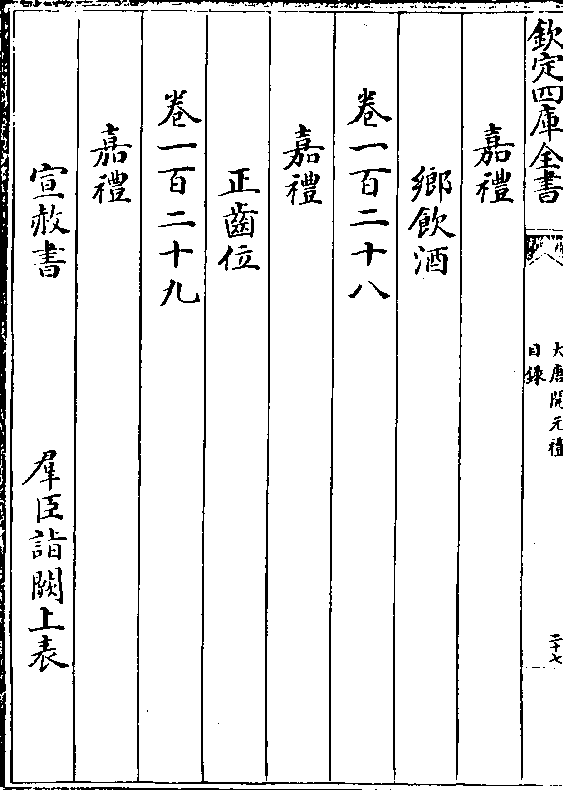 欽定四庫全書
大唐開元禮
目錄
二十七
嘉禮
鄉飲酒
卷一百二十八
嘉禮
正齒位
卷一百二十九
嘉禮
宣赦書 羣臣詣闕上表